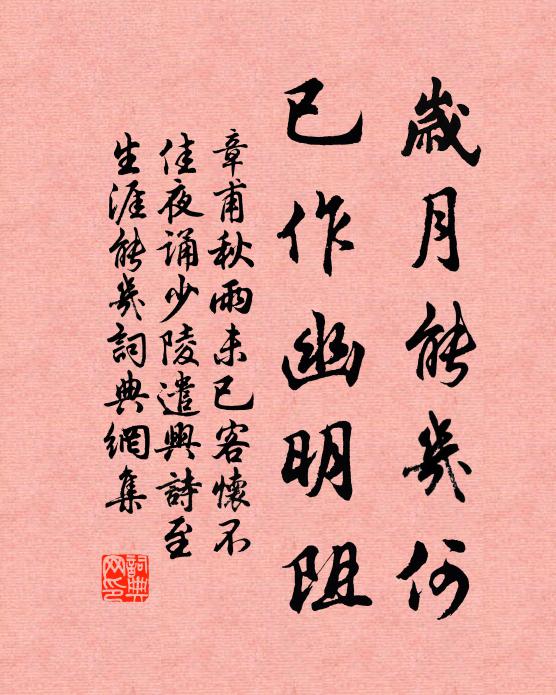 歲月能幾何
已作幽明阻
章甫秋雨未已客懷不
佳夜誦少陵遣興詩至
生涯能幾詞典網集
詞典
网印